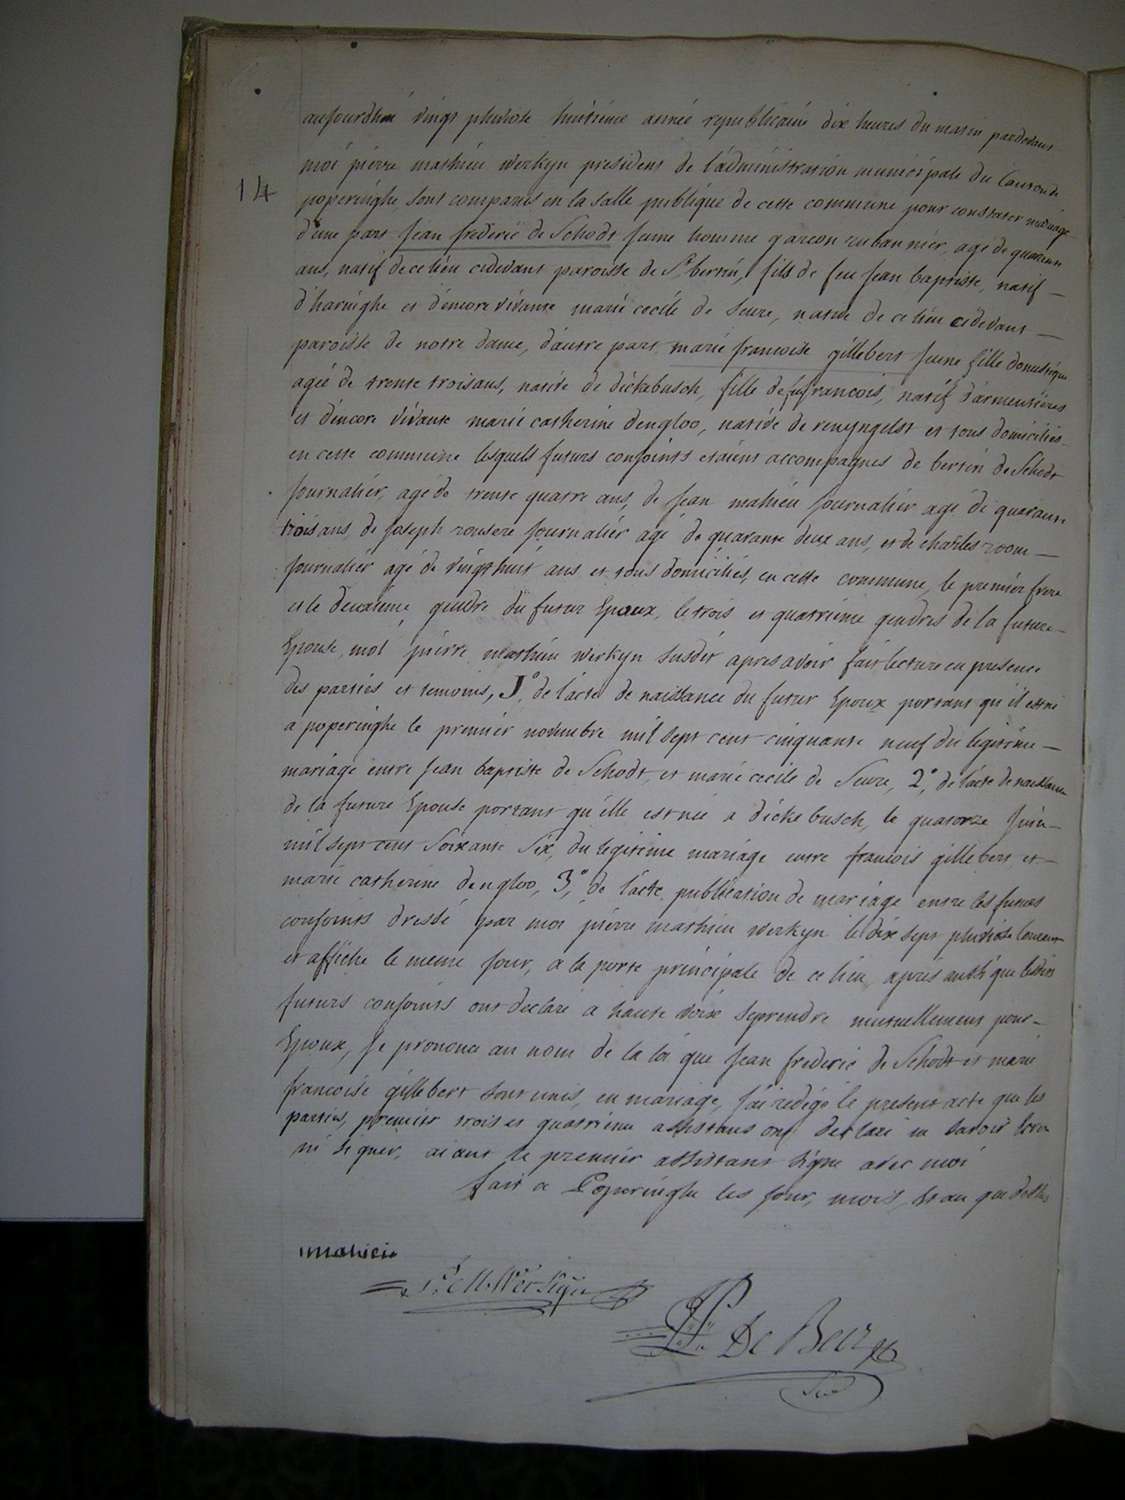 aujourdhui vingt pluviose huitieme année republicaine dix heures du matin pardevant
moi pierre mathieu werkyn president de l'administration municipale du Canton de
14
poperinghe, sont comparus en la salle publique de cette commune pour constater mariage
d'une part jean frederic de Schodt jeune homme garcon rubannier, agé de quarante
ans, natif de ce lieu cidevant paroisse de St bertin, fils de feu jean baptiste, natif
d'haringhe et d'encore vivante marie cecile de Seure, native de ce lieu cidevant
paroisse de notre dame, d'autre part, marie francoise gillebert jeune fille domestique
agée de trente trois ans, native de dickebusch, fille de feu francois, natif d'armentieres
et d'encore vivante marie catherine dengloo, native de renyngelst et tous domiciliés
en cette commune lesquels futurs conjoints etaient accompagnes de bertin de Schodt
journalier, agé de trente quatre ans, de jean mathieu journalier agé de quarante
trois ans, de joseph rousere journalier agé de quarante deux ans, et de charles room
journalier agé de vingt huit ans et tous domiciliés en cette commune, le premier frere
et le deuxieme gendre du futur Epoux, le trois et quatrieme gendres de la future
Epouse, moi pierre mathieu werkyn susdit apres avoir fait lecture en presence
des parties et temoins, 1° de l'acte de naissance du futur Epoux portant qu'il est né
a poperinghe le premier novembre mil sept cent cinquante neuf du legitime
mariage entre jean baptiste de Schodt, et marie cecile de Seure, 2° de l'acte de naissance
de la future Epouse portant qu'elle est née a dickebusch, le quatorze juin
mil sept cent Soixante Six, du legitime mariage entre francois gillebert et
marie catherine dengloo, 3° de l'acte publication de mariage entre les futurs
conjoints dressé par moi pierre mathieu werkyn le dix sept pluviose
et affiche le meme jour, a la porte principale de ce lieu, apres aussi que lesdits
futurs conjoints ont declaré a haute voix se prendre mutuellement pour
Epoux, je prononce au nom de la loi que jean frederic de Schodt et marie
francoise gillebert sont unis, en mariage, j'ai redigé le present acte que les
parties, premier trois et quatrieme assistans ont declaré ne savoir
ni signer, aiant le premier assistant signe avec moi
fait a Poperinghe les jour, mois, et an que dessus
mahieu
P. M. Werkyn
De Beir